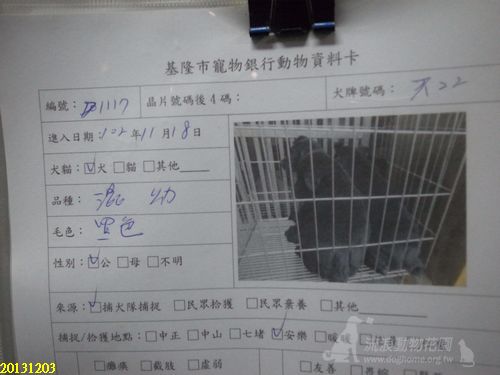 基隆市寵物銀行動物資料卡
編號： D1117 晶片號碼後4碼： 犬牌號碼： 天22
進入日期：102年11月18日
犬貓：☑犬 □貓 □其他
品種： 混 幼
毛色： 黑色
性別：☑公 □母 □不明
來源：☑捕犬隊捕捉 □民眾拾獲 □民眾棄養 □其他
捕捉/拾獲地點：□中正 □中山 □七堵 ☑安樂 □暖暖
□癱瘓 □截肢 □虛弱 □友善 □畏縮
流浪動物花園
www.doghome.org.tw
20131203